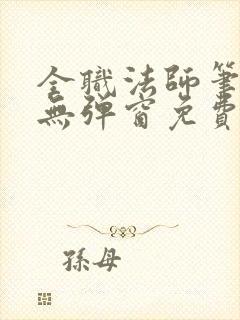 全職法師筆
無彈窗免費
孫母